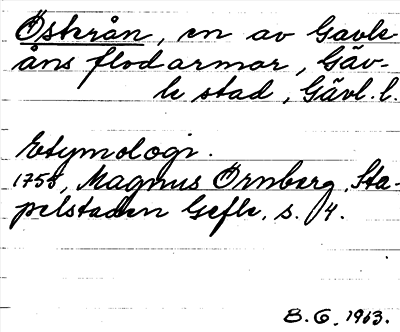 Österån, en av Gavle
åns flodarmar, Gäv-
le stad, Gävl. l.
Etymologi.
1758, Magnus Örnberg, Sta-
pelstaden Gefle, s. 4.
E. G. 1963.